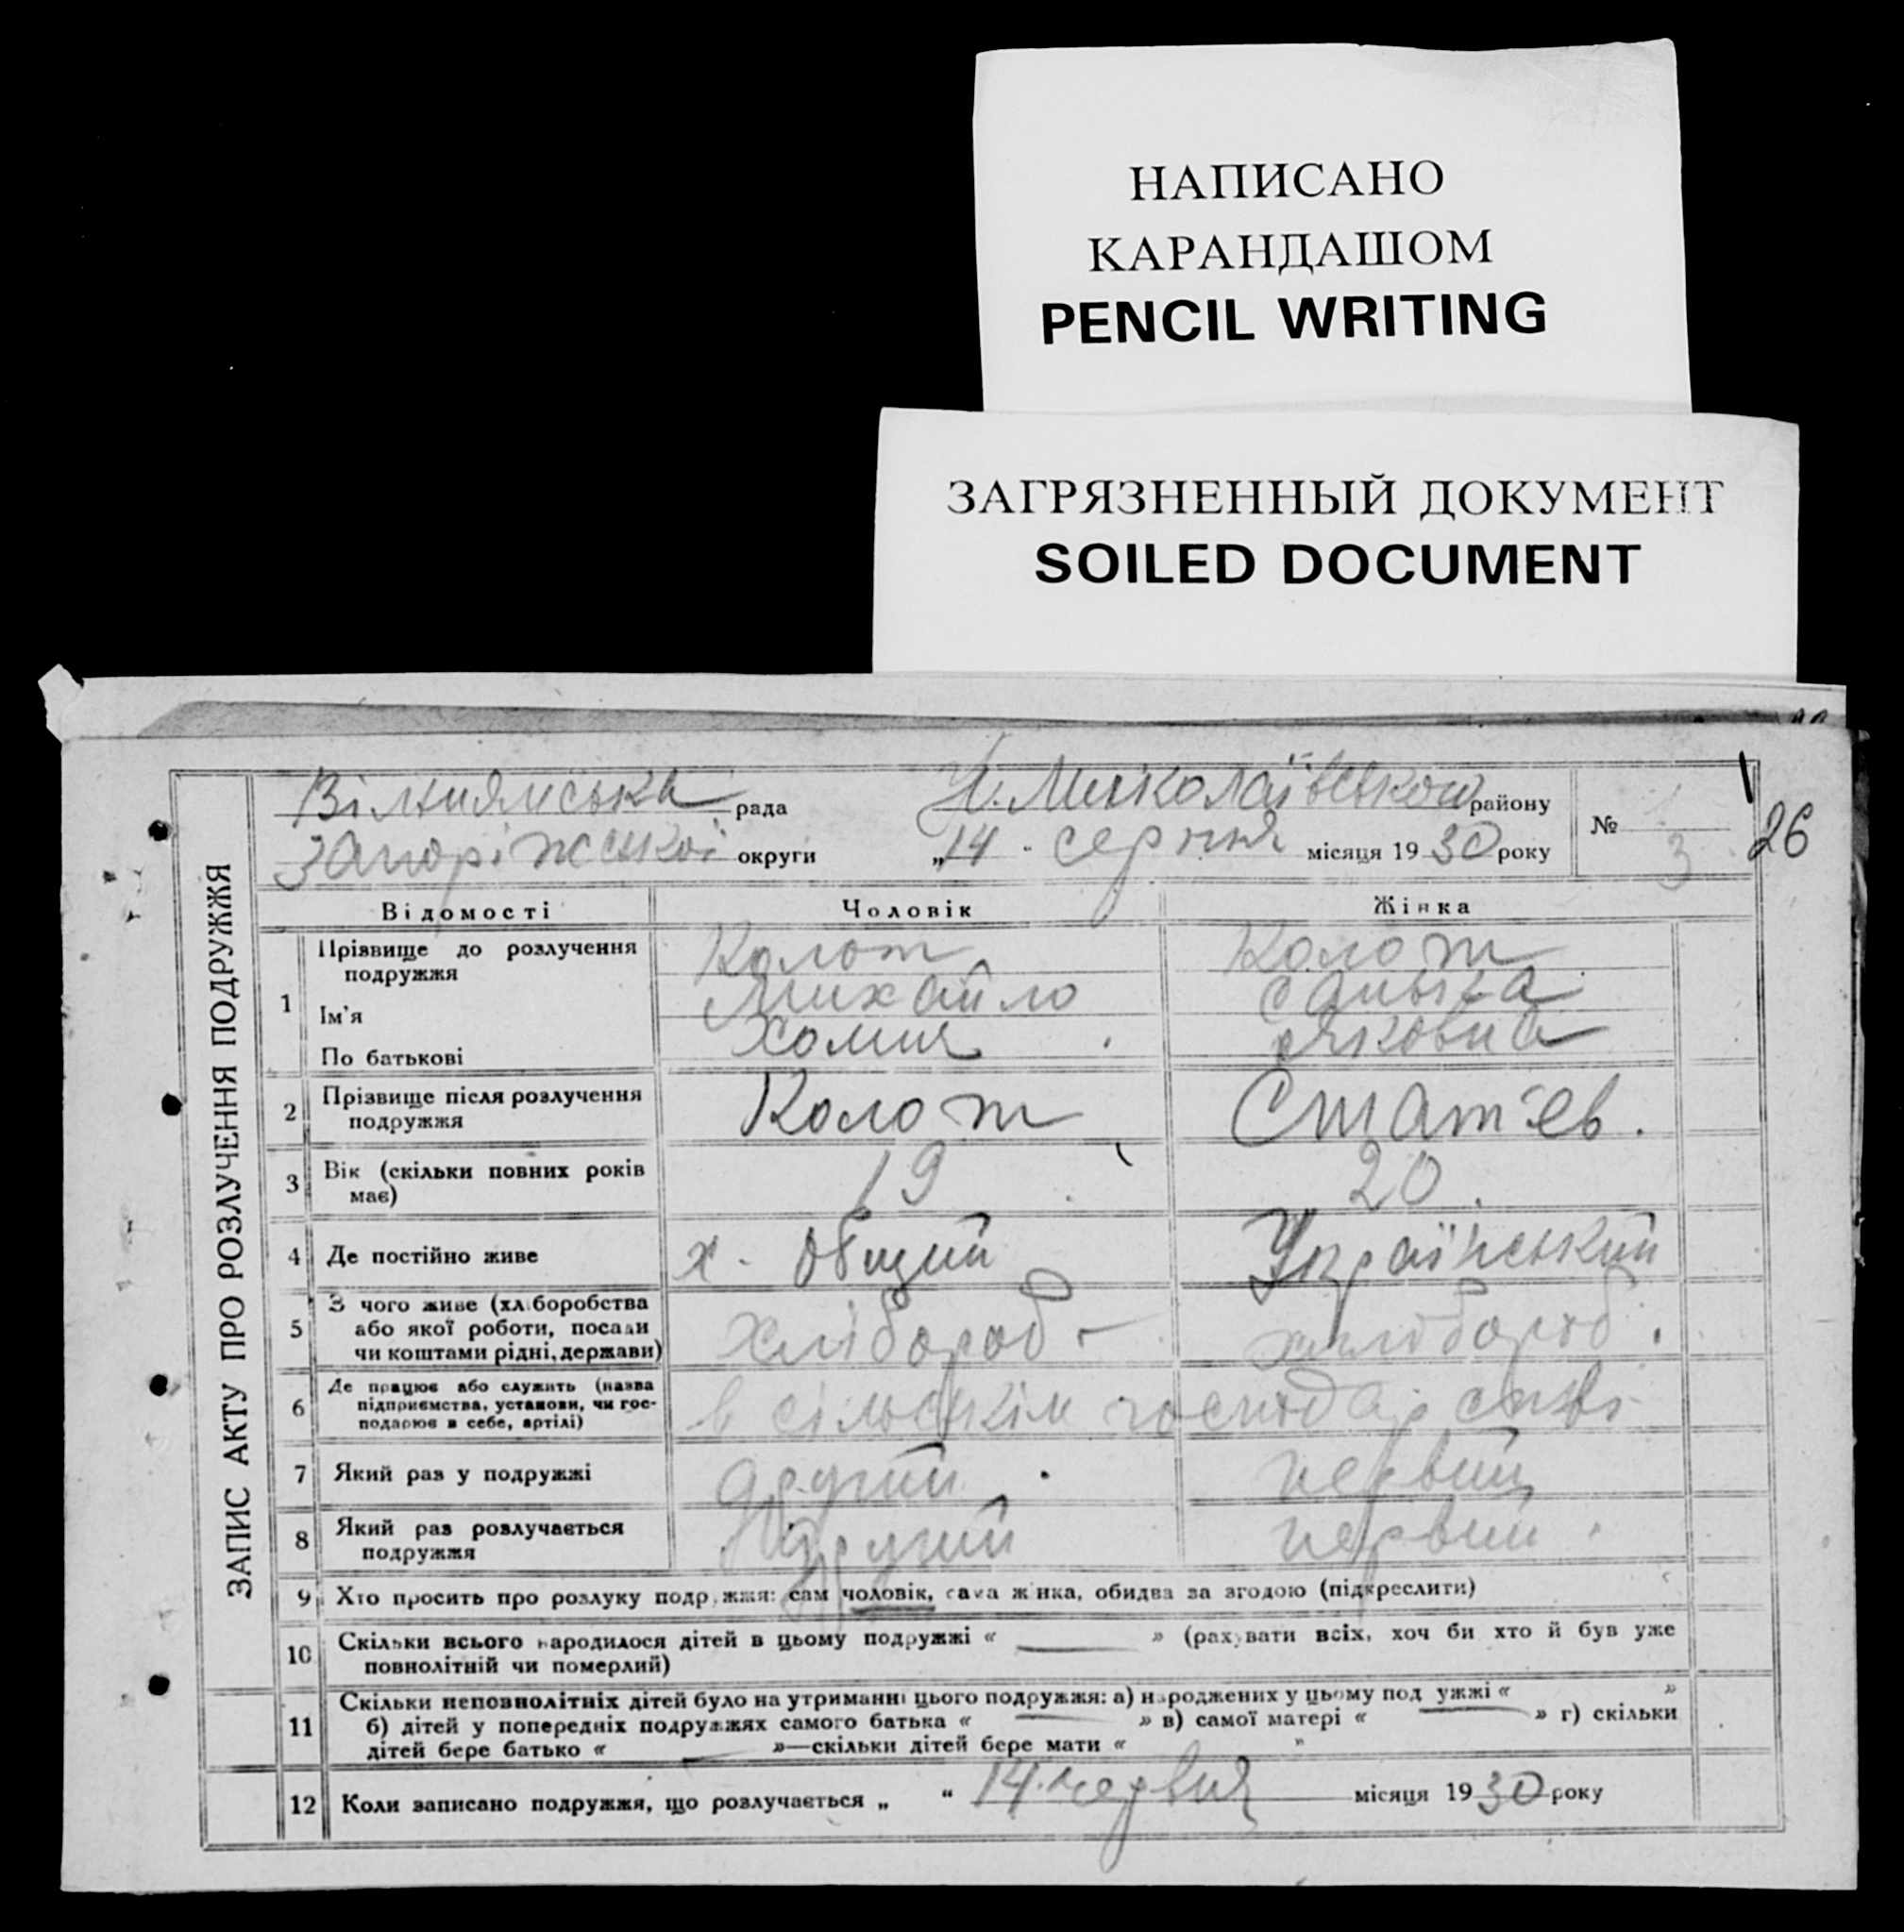 НАПИСАНО
КАРАНДАШОМ
PENCIL WRITING
ЗАГРЯЗНЕННЫЙ ДОКУМЕНТ
SOILED DOCUMENT
ЗАПИС АКТУ ПРО РОЗЛУЧЕННЯ ПОДРУЖЖЯ
рада Н. Миколаївського району
Запоріжської округи „14 " серпня місяця 1930 року № 3 26
Відомості Чоловік Жінка
1 Прізвище до розлучення подружжя Колот Колот
Ім'я Михайло
По батькові Хомич Яковна
2 Прізвище після розлучення подружжя Колот Стат'ев.
3 Вік (скільки повних років має) 19 20.
4 Де постійно живе х. Общий Український
5 З чого живе (хліборобства або якої роботи, посади чи коштами рідні, держави) хлібороб хлібороб.
6 Де працює або служить (назва підприємства, установи, чи господарює в себе, артілі) в сільскім господарстві
7 Який раз у подружжі другий первий
8 Який раз розлучається подружжя другий первий.
9 Хто просить про розлуку подружжя: сам чоловік, сама жінка, обидва за згодою (підкреслити)
10 Скільки всього народилося дітей в цьому подружжі « — » (рахувати всіх, хоч би хто й був уже
повнолітній чи померлий)
11 Скільки неповнолітніх дітей було на утриманні цього подружжя: а) народжених у цьому подружжі « — »
б) дітей у попередніх подружжях самого батька « — » в) самої матері « — » г) скільки
дітей бере батько « — »—скільки дітей бере мати « "
12 Коли записано подружжя, що розлучається „ “ 14 червня місяця 1930 року